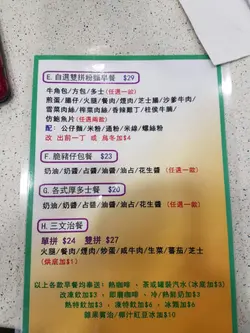 E. 自選雙拼粉麵早餐 $29
牛角包/方包/多士(任選一款)
煎蛋/腸仔/火腿/餐肉/煙肉/芝士腸/沙爹牛肉/
雪菜肉絲/榨菜肉絲/香辣雞丁/柱侯牛腩/
仿鮑魚片(任選兩款)
配: 公仔麵/米粉/通粉/米線/螺絲粉
改 出前一丁 或 烏冬加$4
F. 脆豬仔包餐 $23
奶油/奶醬/占醬/油醬/油占/花生醬 (任選一款)
G. 各式厚多士餐 $20
奶油/奶醬/占醬/油醬/油占/花生醬 (任選一款)
H. 三文治餐
單拼 $24 雙拼 $27
火腿/餐肉/煙肉/炒蛋/咸牛肉/生菜/蕃茄/芝士
(烘底加$1)
以上各款早餐均奉送: 熱咖啡 、茶或罐裝汽水(冰底加$3)
改凍飲加$3 、即磨咖啡 、冷/熱鮮奶加$3
熱特飲加$3 、凍特飲加$6 、冰類加$6
蘋果賓治/椰汁紅豆冰加$10